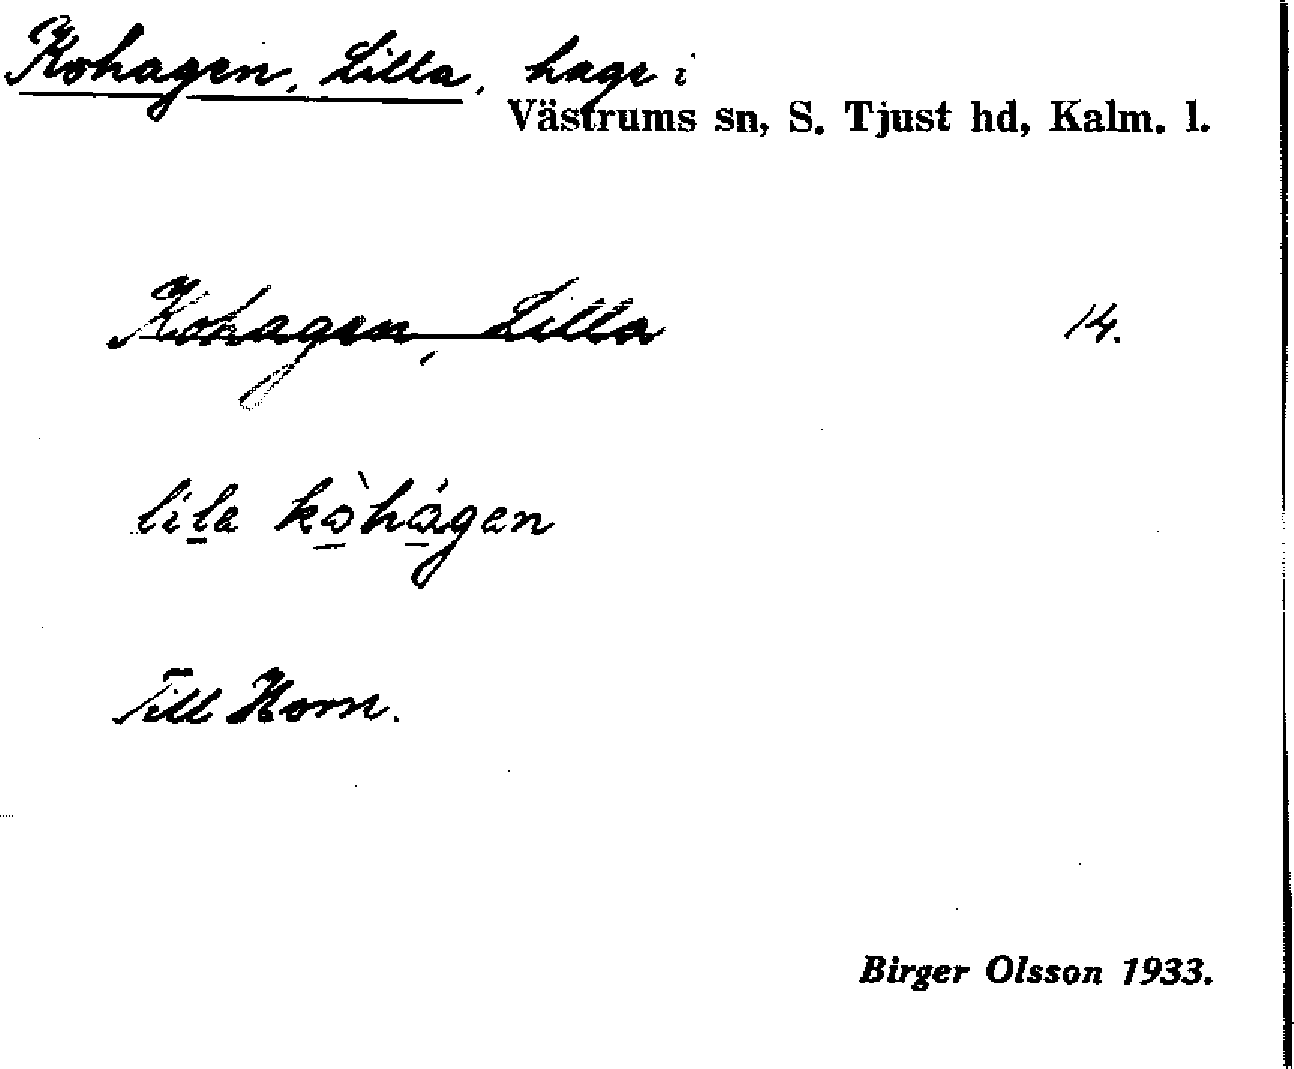 Kohagen, Lilla, hage i
Västrums sn, S. Tjust hd, Kalm. l.
Kohagen, Lilla 14.
lila kòhágen
Till Horn.
Birger Olsson 1933.